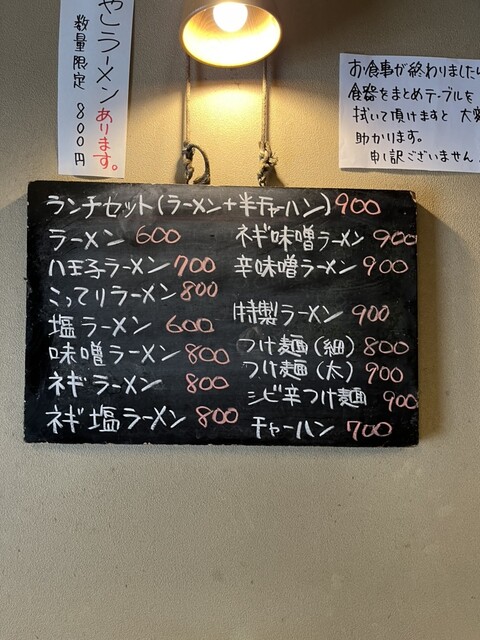 やしラーメン あります。
数量限定 800円
お食事が終わりました
食器をまとめテーブルを
拭いて頂けますと 大変
助かります。
申し訳ございません
ランチセット(ラーメン+半チャーハン)900
ラーメン 600
八王子ラーメン 700
こってりラーメン 800
塩ラーメン 600
味噌ラーメン 800
ネギラーメン 800
ネギ塩ラーメン 800
ネギ味噌ラーメン 900
辛味噌ラーメン 900
特製ラーメン 900
つけ麺(細) 800
つけ麺(太) 900
シビ辛つけ麺 900
チャーハン 700